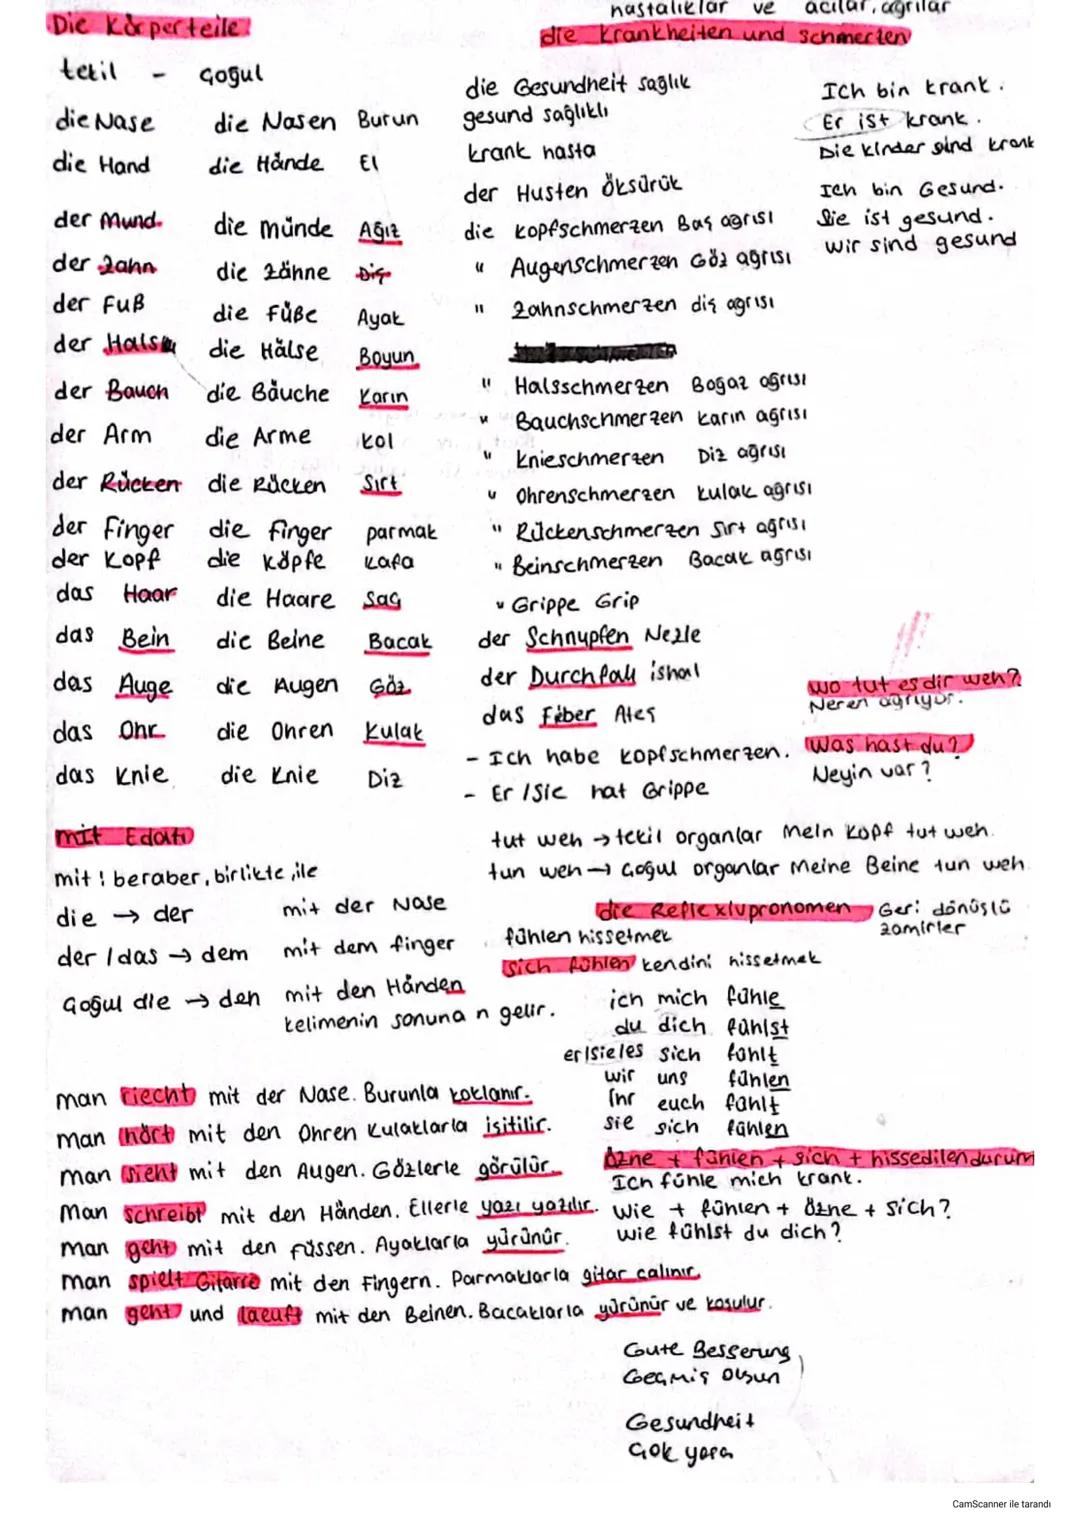 Die Körperteile:
tekil - Çoğul
die Nase die Nasen Burun
die Hand die Hände El
der Mund die münde Ağız
der Zahn die Zähne Diş
der Fuß die Füße Ayak
der Hals die Hälse Boyun
der Bauch die Bäuche Karın
der Arm die Arme kol
der Rücken die Rücken Sırt
der Finger die finger parmak
der Kopf die Köpfe kafa
das Haar die Haare Saç
das Bein die Beine Bacak
das Auge die Augen Göz
das Ohr die Ohren Kulak
das Knie die Knie Diz
mit Edatı
mit : beraber, birlikte, ile
die → der mit der Nase
der / das → dem mit dem finger
Çoğul die → den mit den Händen
kelimenin sonuna n gelir.
man riecht mit der Nase. Burunla koklanır.
man hört mit den Ohren Kulaklarla işitilir.
man sieht mit den Augen. Gözlerle görülür.
Man schreibt mit den Händen. Ellerle yazı yazılır.
man geht mit den füssen. Ayaklarla yürünür.
man spielt Gitarre mit den Fingern. Parmaklarla gitar çalınır.
man geht und laeuft mit den Beinen. Bacaklarla yürünür ve koşulur.
hastalıklar ve acılar, ağrılar
die Krankheiten und schmerzen
die Gesundheit sağlık
gesund sağlıklı
krank hasta
der Husten öksürük
die kopfschmerzen Baş ağrısı
" Augenschmerzen Göz ağrısı
" Zahnschmerzen diş ağrısı
" Halsschmerzen Boğaz ağrısı
" Bauchschmerzen karın ağrısı
" knieschmerzen Diz ağrısı
" Ohrenschmerzen kulak ağrısı
" Rückenschmerzen Sırt ağrısı
" Beinschmerzen Bacak ağrısı
" Grippe Grip
der Schnupfen Nezle
der Durchfall ishal
das Fieber Ateş
- Ich habe kopfschmerzen.
- Er / Sie hat Grippe
Ich bin krank.
Er ist krank.
Die kinder sind krank
Ich bin Gesund.
Sie ist gesund.
wir sind gesund
wo tut es dir weh?
Neren ağrıyor.
Was hast du?
Neyin var?
tut weh → tekil organlar Mein Kopf tut weh.
tun weh → Çoğul organlar Meine Beine tun weh
die Reflexivpronomen Geri dönüşlü
zamirler
fühlen hissetmek
sich fühlen kendini hissetmek
ich mich fühle
du dich fühlst
er/sie/es sich fühlt
wir uns fühlen
Ihr euch fühlt
sie sich fühlen
Özne + fühlen + sich + hissedilen durum
Ich fühle mich krank.
Wie + fühlen + Özne + sich?
wie fühlst du dich?
Gute Besserung,
Geçmiş Olsun
Gesundheit
Çok yaşa
CamScanner ile tarandı